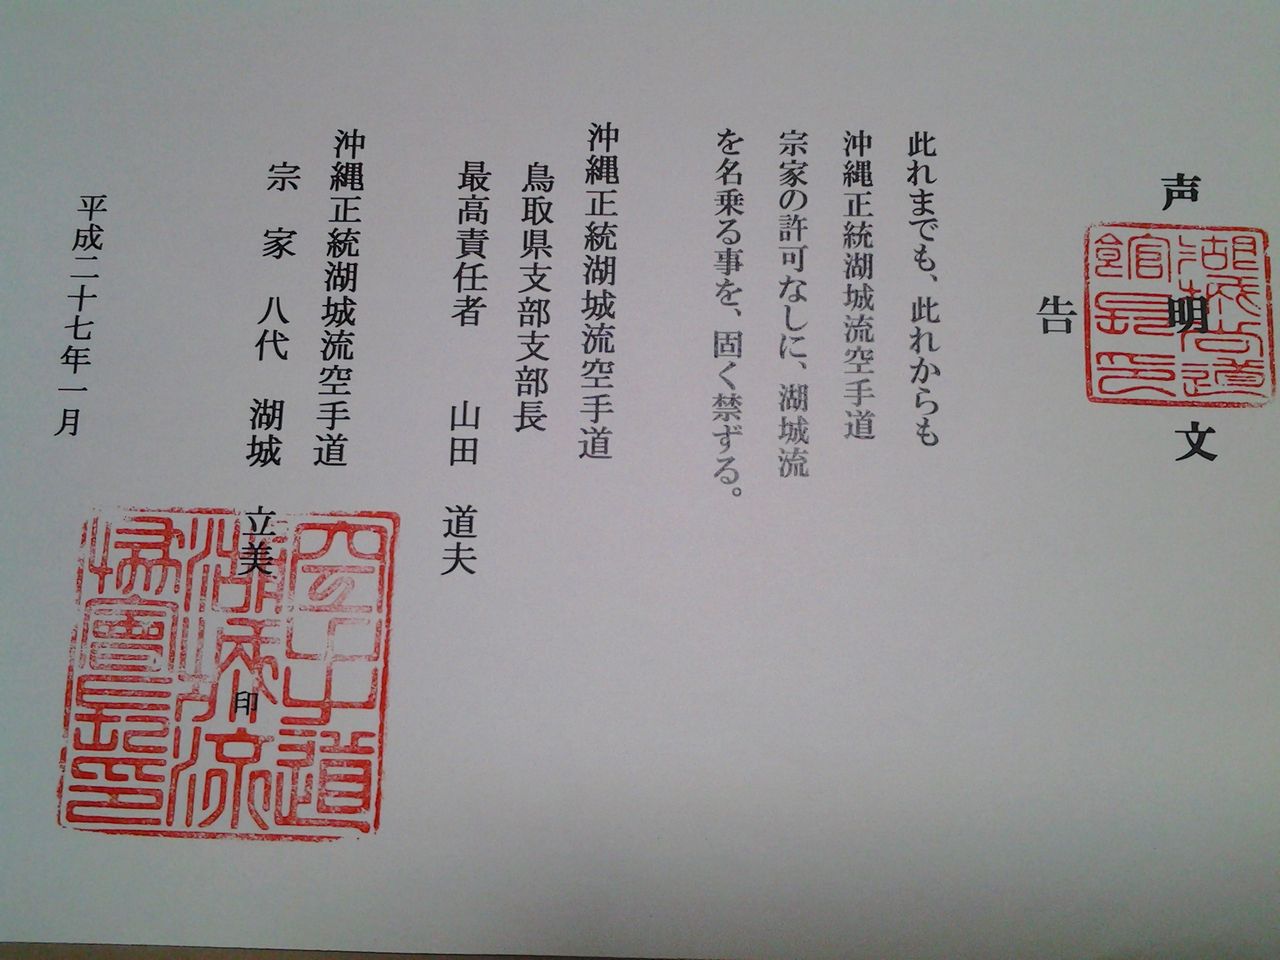 声明文
告
此れまでも、此れからも
沖縄正統湖城流空手道
宗家の許可なしに、湖城流
を名乗る事を、固く禁ずる。
沖縄正統湖城流空手道
鳥取県支部支部長
最高責任者 山田 道夫
沖縄正統湖城流空手道
宗家 八代 湖城 立美 印
平成二十七年一月
空手道
湖城流
協會長印